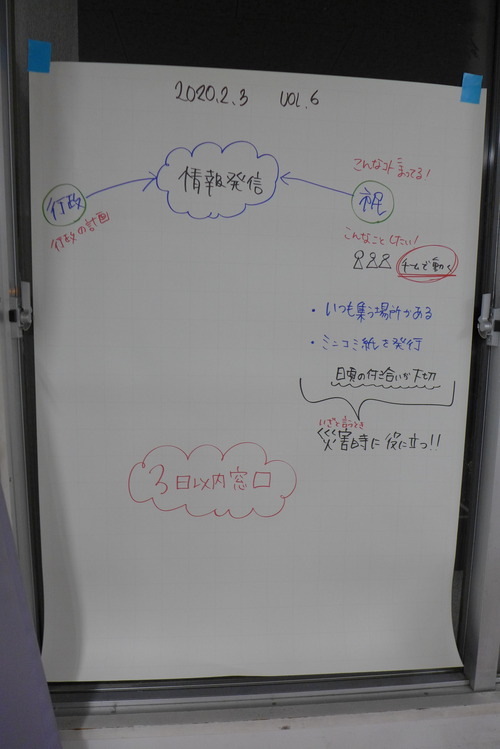 2020.2.3 VOL.6
情報発信
行政
行政の計画
こんなコト
まってる!
市民
こんなことしたい!
チームで動く
・いつも集う場所がある
・ミニコミ紙を発行
日頃の付き合いが大切
いざと言うとき
災害時に役に立つ!!
3日以内窓口